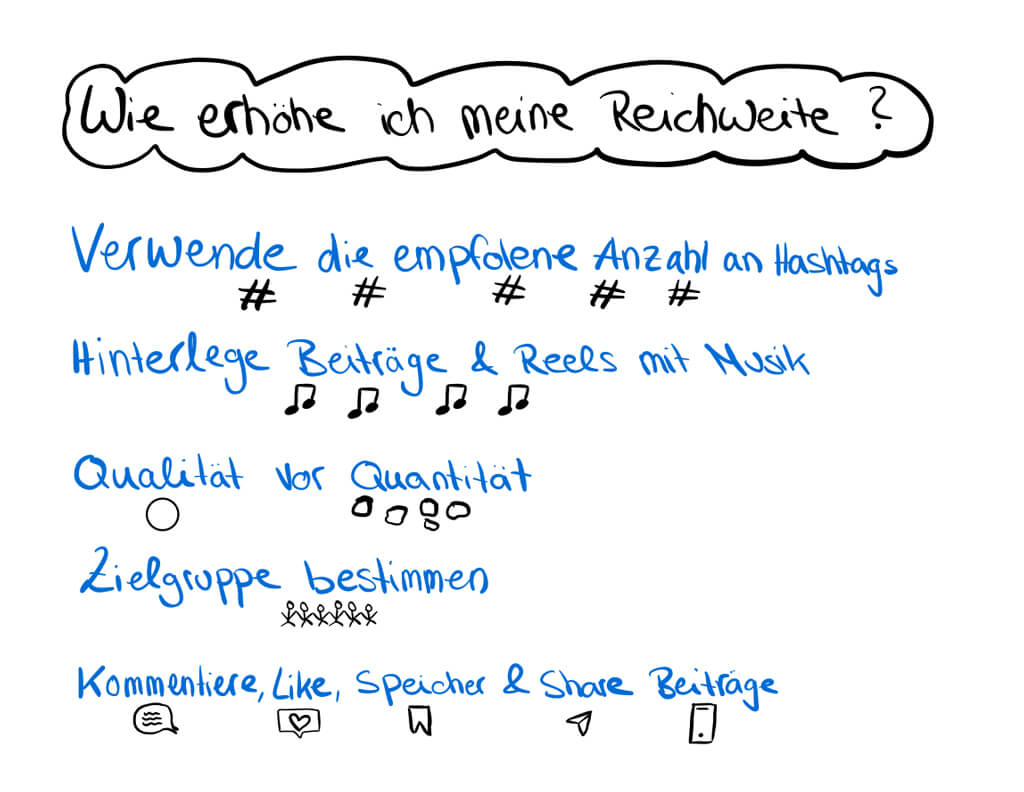 Wie erhöhe ich meine Reichweite?
Verwende die empfolene Anzahl an Hashtags
# # # # #
Hinterlege Beiträge & Reels mit Musik
Qualität vor Quantität
Zielgruppe bestimmen
Kommentiere, Like, Speicher & Share Beiträge